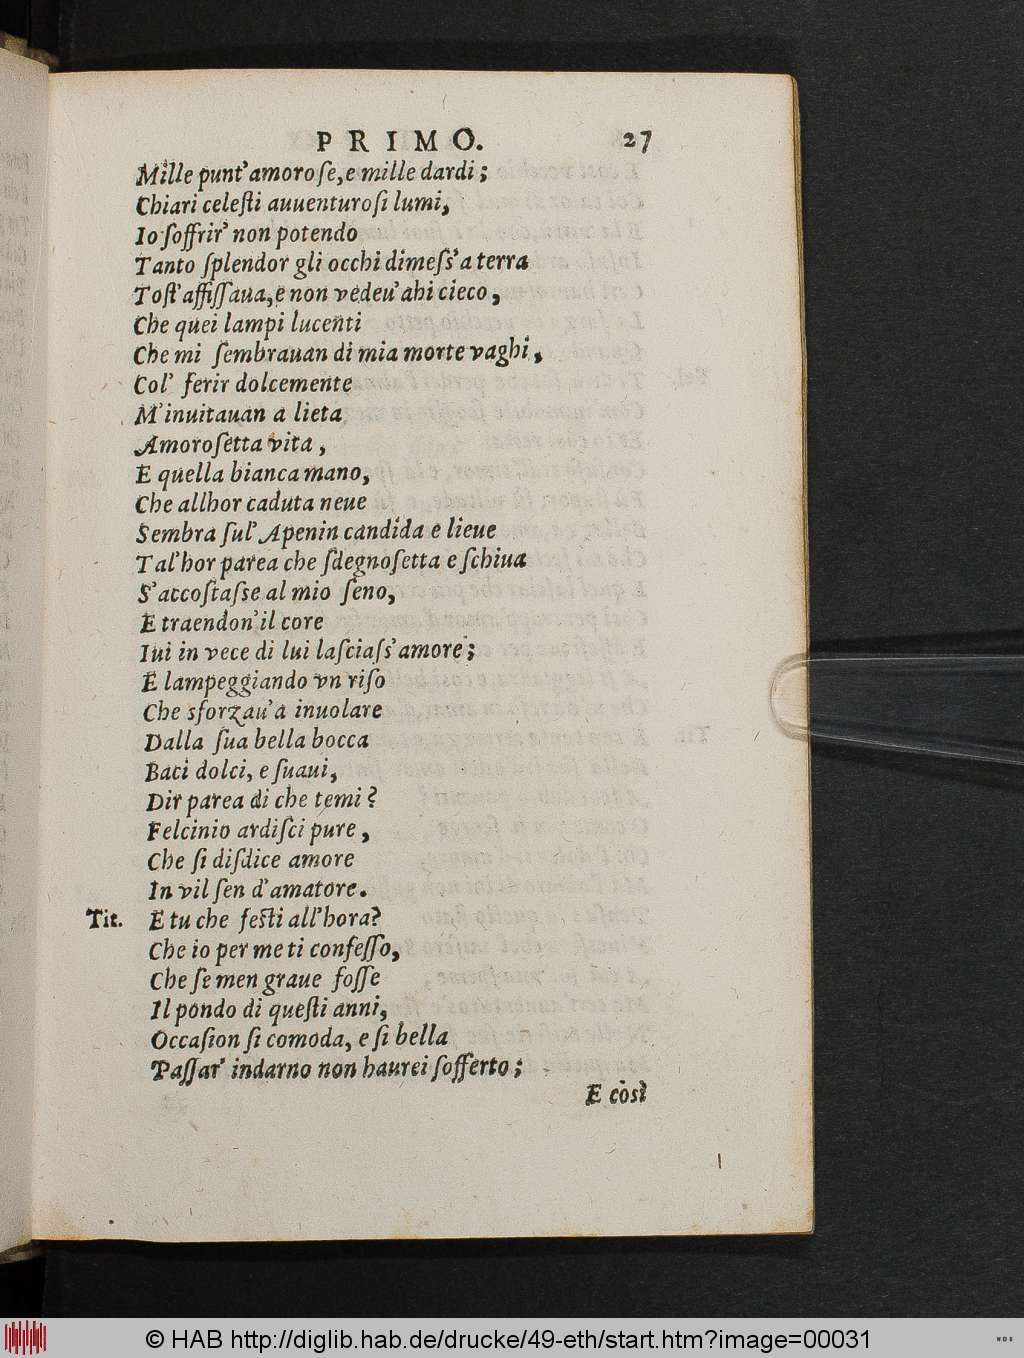 PRIMO. 27
Mille punt'amorose, e mille dardi;
Chiari celeſti auuenturoſi lumi,
Io ſoffrir' non potendo
Tanto ſplendor gli occhi dimeſſ'a terra
Toſt'affiſſaua, e non vedeu'ahi cieco,
Che quei lampi lucenti
Che mi ſembrauan di mia morte vaghi,
Col' ferir dolcemente
M'inuitauan a lieta
Amoroſetta vita,
E quella bianca mano,
Che allhor caduta neue
Sembra ſul' Apenin candida e lieue
Tal'hor parea che ſdegnoſetta e ſchiua
S'accoſtaſſe al mio ſeno,
E traendon'il core
Iui in vece di lui laſciaſſ'amore;
E lampeggiando vn riſo
Che sforzau'a inuolare
Dalla ſua bella bocca
Baci dolci, e ſuaui,
Dir parea di che temi?
Felcinio ardiſci pure,
Che ſi diſdice amore
In vil ſen d'amatore.
Tit. E tu che feſti all'hora?
Che io per me ti confeſſo,
Che ſe men graue foſſe
Il pondo di queſti anni,
Occaſion ſi comoda, e ſi bella
Paſſar' indarno non haurei ſofferto;
E così
© HAB http://diglib.hab.de/drucke/49-eth/start.htm?image=00031